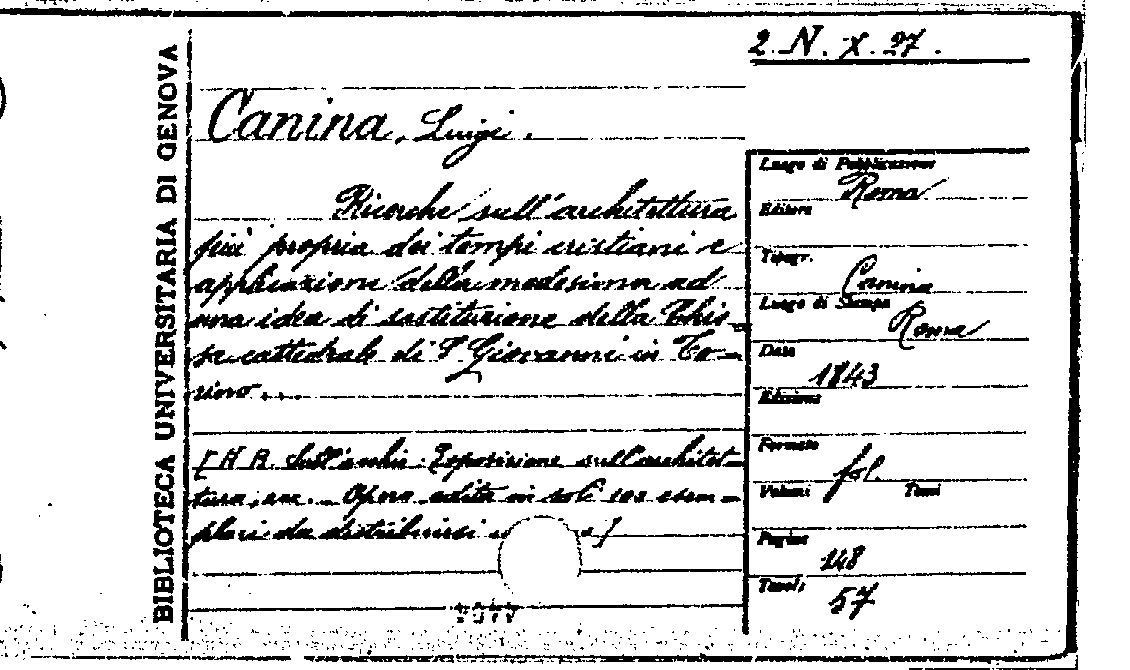 BIBLIOTECA UNIVERSITARIA DI GENOVA
2. N. X. 27.
Canina, Luigi.
Ricerche sull'architettura
più propria dei tempi cristiani e
applicazione della medesima ad
una idea di sostituzione della Chie-
sa cattedrale di S. Giovanni in To-
rino...
Esposizione sull'architet-
tura, Opera edita in soli esem-
plari da distribuirsi
Luogo di Pubblicazione
Roma
Editore
Tipogr.
Canina
Luogo di Stampa
Roma
Data
1843
Edizione
Formato
fol.
Volumi Tomi
Pagine
148
Tavole
57